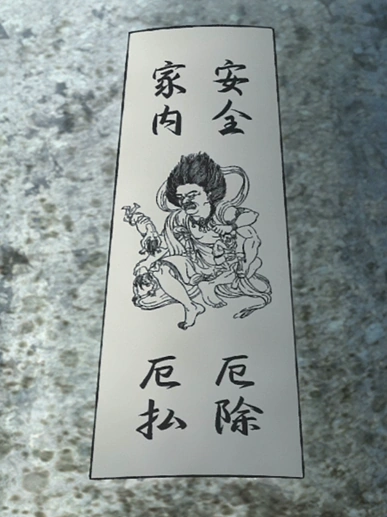 安全
家内
厄除
厄払